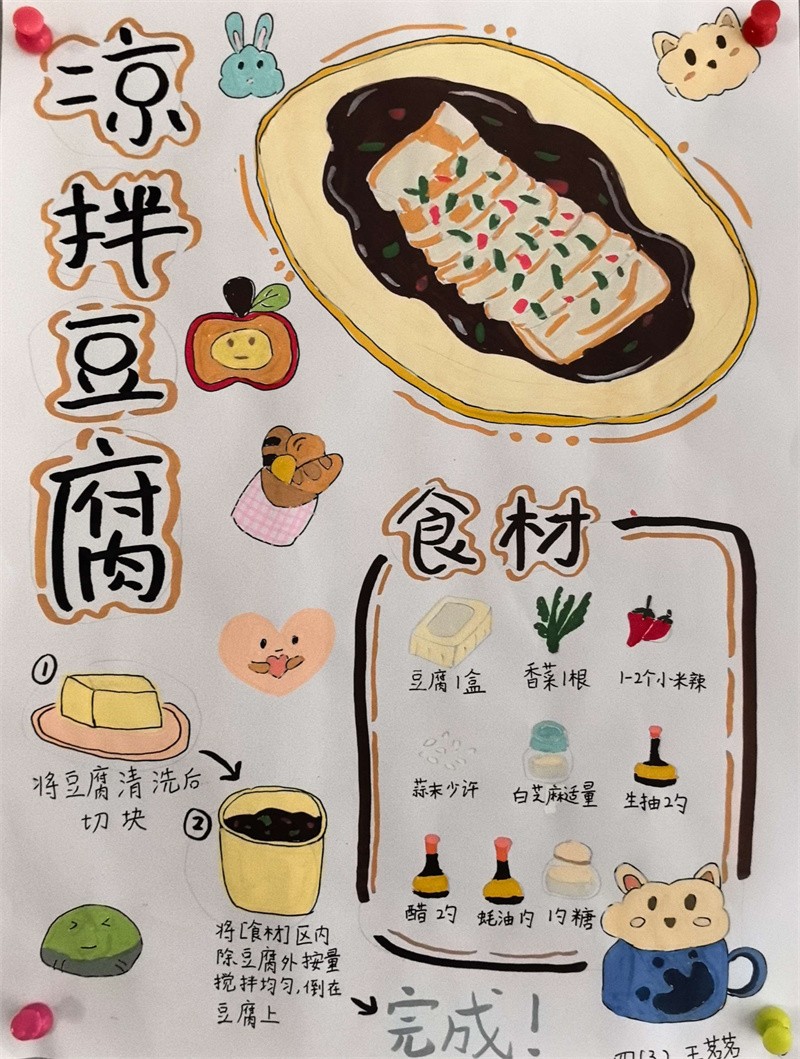 凉拌豆腐
食材
豆腐1盒
香菜1根
1-2个小米辣
蒜末少许
白芝麻适量
生抽2勺
醋2勺
蚝油1勺
1勺糖
①
将豆腐清洗后
切块
②
将[食材]区内
除豆腐外按量
搅拌均匀,倒在
豆腐上
完成!
四(3) 王茗茗